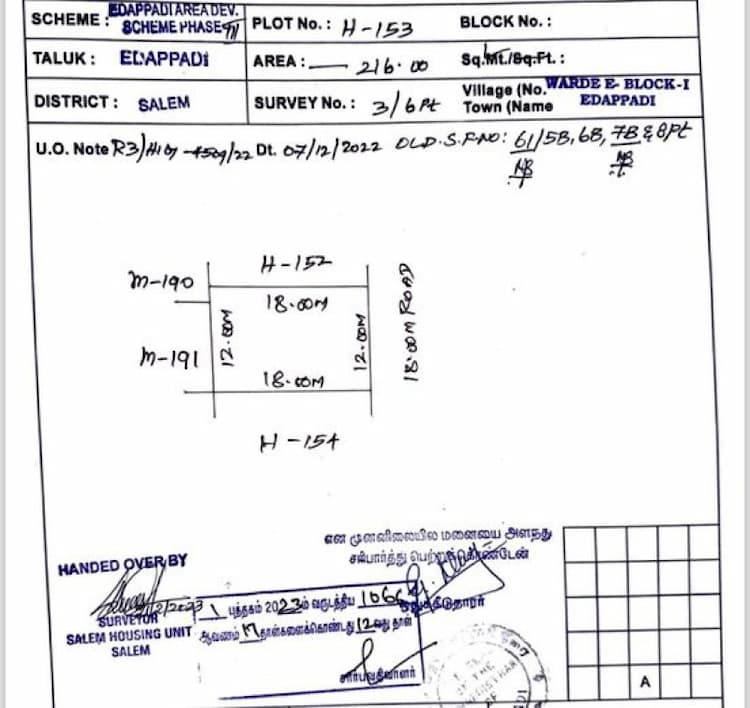 SCHEME : EDAPPADI AREA DEV. SCHEME PHASE-III PLOT No. : H-153 BLOCK No. :
TALUK : EDAPPADI AREA : 216.00 Sq.Mt./Sq.Ft. :
DISTRICT : SALEM SURVEY No. : 3/6Pt Village (No. Town (Name WARD E- BLOCK-I EDAPPADI
U.O. Note R3/ /22 Dt. 07/12/2022 OLD.S.F.NO: 61/5B, 6B, 7B & 8Pt
M-190
H-152
18.00M
12.00M
12.00M
18.00M ROAD
M-191
18.00M
H-154
என் முன்னிலையில் மனையை அளந்து
சரிபார்த்து பெற்றுக்கொண்டேன்
HANDED OVER BY
/12/2023
SURVEYOR
SALEM HOUSING UNIT
SALEM
1 புத்தகம் 2023ம் வருடத்திய
ஆவணம் 17 தாள்களைக்கொண்டது 12வது தாள்
சார்பதிவாளர்
A